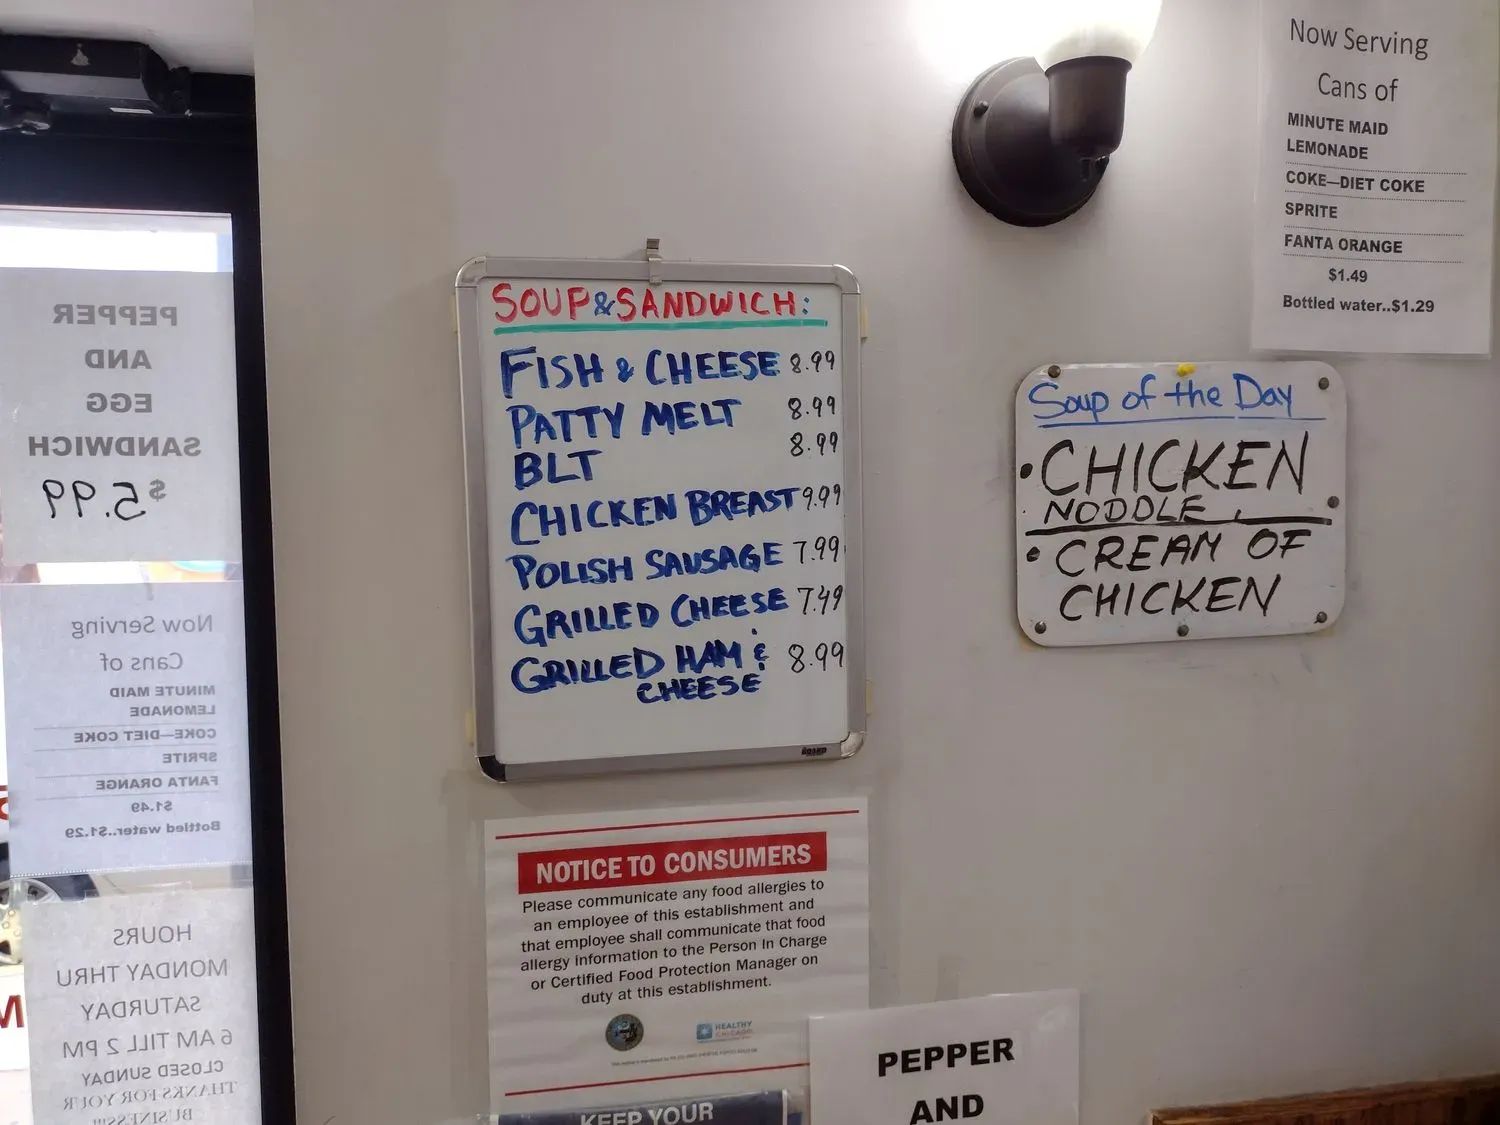 PEPPER
AND
EGG
SANDWICH
$5.99
Now Serving
Cans of
MINUTE MAID
LEMONADE
COKE—DIET COKE
SPRITE
FANTA ORANGE
$1.49
Bottled water..$1.29
HOURS
MONDAY THRU
SATURDAY
6 AM TILL 2 PM
CLOSED SUNDAY
THANKS FOR YOUR
BUSINESS!!!
SOUP & SANDWICH:
FISH & CHEESE 8.99
PATTY MELT 8.99
BLT 8.99
CHICKEN BREAST 9.99
POLISH SAUSAGE 7.99
GRILLED CHEESE 7.49
GRILLED HAM & 8.99
CHEESE
NOTICE TO CONSUMERS
Please communicate any food allergies to
an employee of this establishment and
that employee shall communicate that food
allergy information to the Person In Charge
or Certified Food Protection Manager on
duty at this establishment.
HEALTHY
CHICAGO
KEEP YOUR
PEPPER
AND
Now Serving
Cans of
MINUTE MAID
LEMONADE
COKE—DIET COKE
SPRITE
FANTA ORANGE
$1.49
Bottled water..$1.29
Soup of the Day
• CHICKEN
NOODLE
• CREAM OF
CHICKEN